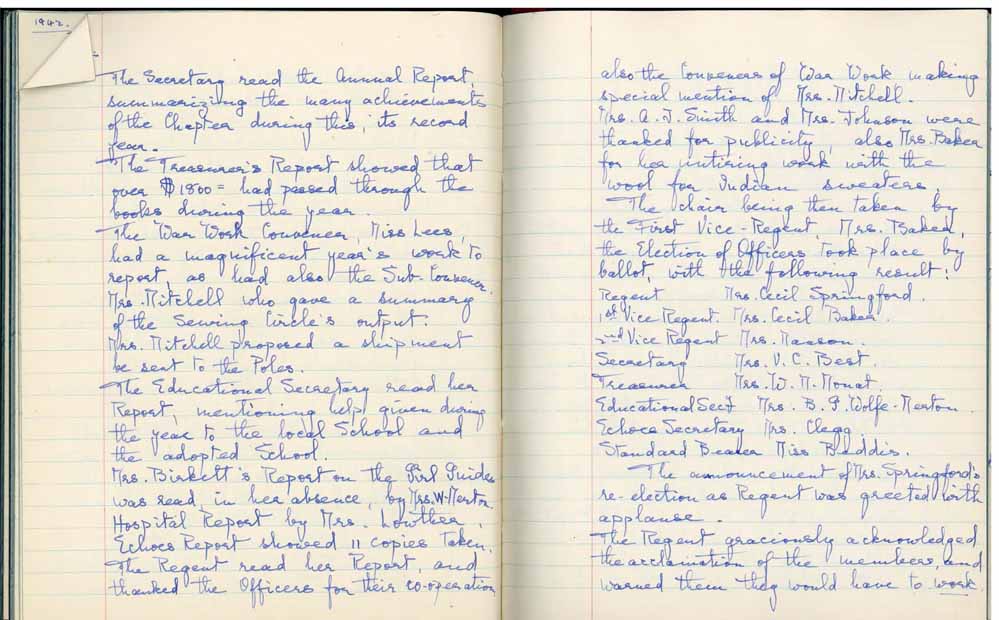 1942.
The Secretary read the Annual Report,
summarizing the many achievements
of the Chapter during this, its record
year.
The Treasurer's Report showed that
over $1800= had passed through the
books during the year.
The War Work Convener, Miss Lees,
had a magnificent year's work to
report, as had also the Sub-Convener.
Mrs. Mitchell who gave a summary
of the Sewing Circle's output.
Mrs. Mitchell proposed a shipment
be sent to the Poles.
The Educational Secretary read her
Report, mentioning help given during
the year to the local School and
the adopted School.
Mrs. Birkett's Report on the Girl Guides
was read, in her absence, by Mrs. W-Merton.
Hospital Report by Mrs. Lowther.
Echoes Report showed 11 copies taken.
The Regent read her Report, and
thanked the Officers for their co-operation
also the Conveners of War Work making
special mention of Mrs. Mitchell.
Mrs. A. J. Smith and Mrs. Johnson were
thanked for publicity, also Mrs. Baker
for her untiring work with the
wool for Indian sweaters.
The chair being then taken by
the First Vice-Regent, Mrs. Baker,
the Election of Officers took place by
ballot, with the following result:
Regent Mrs. Cecil Springford.
1st Vice Regent. Mrs. Cecil Baker.
2nd Vice Regent Mrs.
Secretary Mrs. V. C. Best.
Treasurer Mrs. W. M. Mouat.
Educational Sect Mrs. B. G. Wolfe-Merton.
Echoes Secretary Mrs. Clegg.
Standard Bearer Miss Beddis.
The announcement of Mrs. Springford's
re-election as Regent was greeted with
applause.
The Regent graciously acknowledged
the acclamation of the members, and
warned them they would have to work.